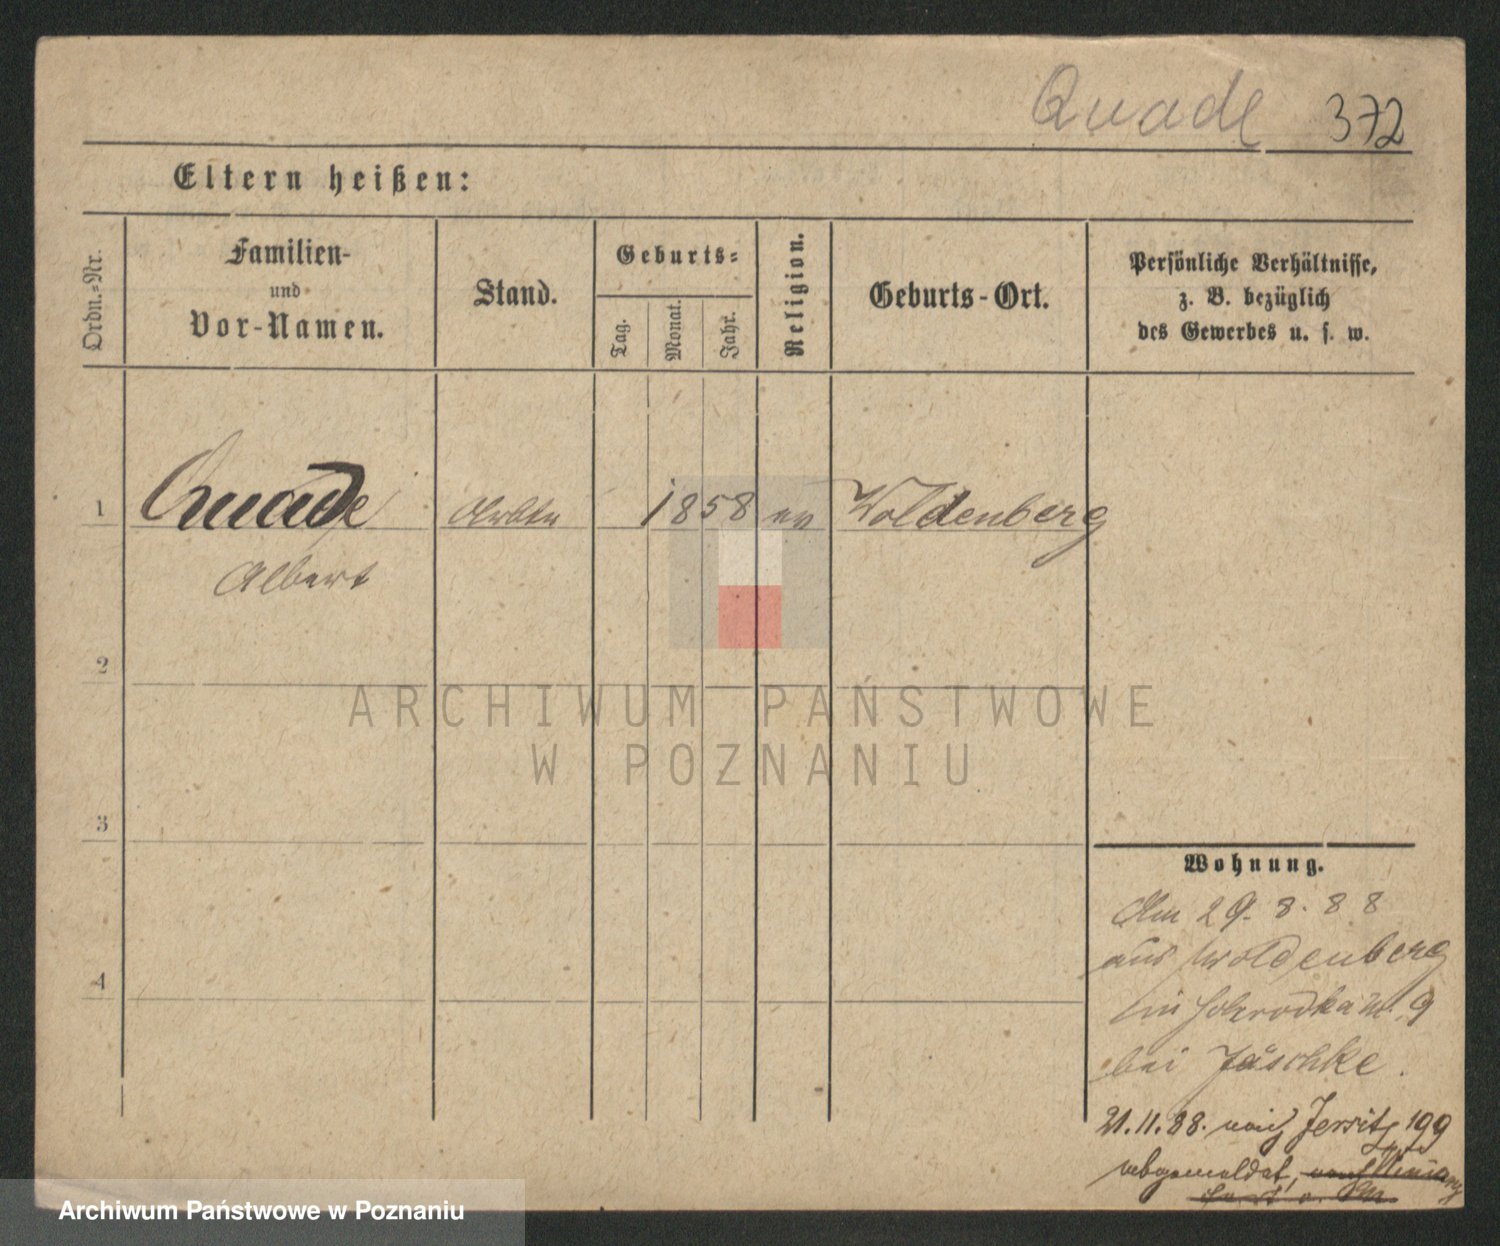 Quade 372
Eltern heißen:
Ordn.-Nr.
Familien-
und
Vor-Namen.
Stand.
Geburts-
Tag.
Monat.
Jahr.
Religion.
Geburts-Ort.
Persönliche Verhältnisse,
z. B. bezüglich
des Gewerbes u. s. w.
1 Quade 1858 ev Woldenberg
Albert
2
3
4
ARCHIWUM PAŃSTWOWE
W POZNANIU
Wohnung.
Am 29. 8. 88
aus Woldenberg
in 9
bei Jäschke.
21.11.88. nach Jersitz 199
abgemeldet,
Archiwum Państwowe w Poznaniu